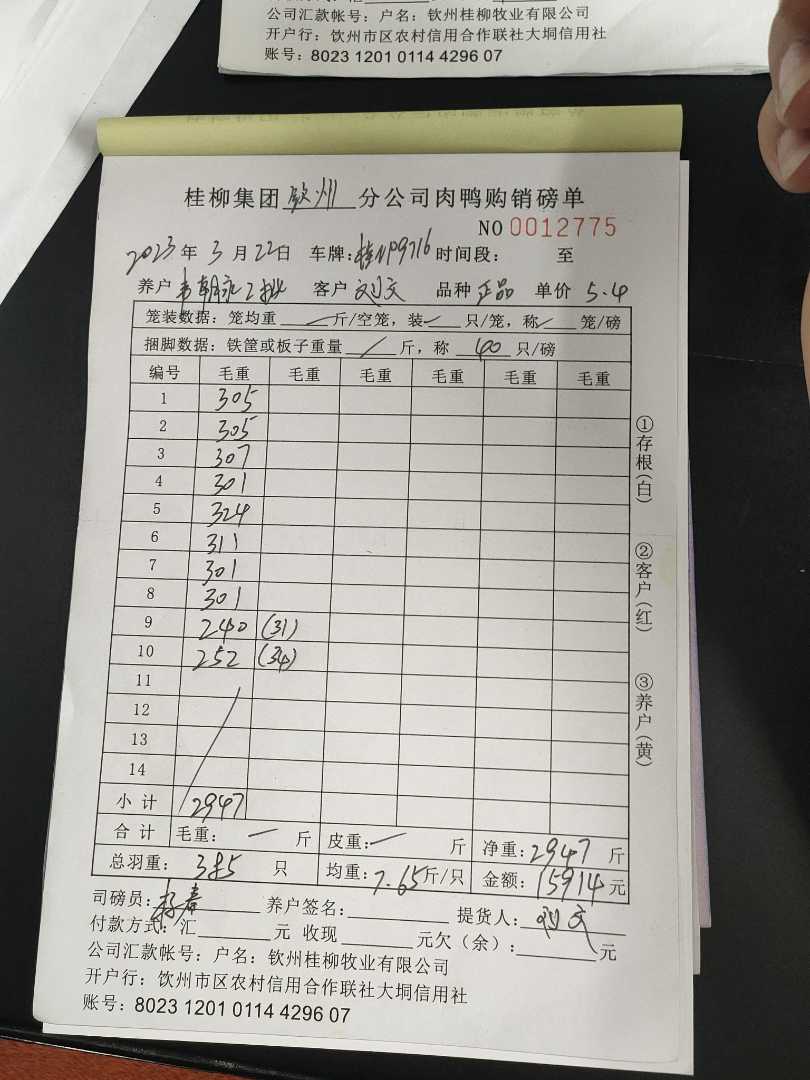 公司汇款帐号：户名：钦州桂柳牧业有限公司
开户行：钦州市区农村信用合作联社大垌信用社
账号：8023 1201 0114 4296 07
桂柳集团钦州分公司肉鸭购销磅单
NO 0012775
2023年3月22日 车牌：桂NP9716 时间段： 至
养户 客户 刘文 品种 正品 单价 5.4
笼装数据：笼均重 斤/空笼，装 只/笼，称 笼/磅
捆脚数据：铁筐或板子重量 斤，称 40 只/磅
编号 毛重 毛重 毛重 毛重 毛重 毛重
1 305
2 305
3 307
4 301
5 324
6 311
7 301
8 301
9 240 (31)
10 252 (34)
11
12
13
14
小计 2947
合计 毛重： 斤 皮重： 斤 净重：2947 斤
总羽重：385 只 均重：7.65斤/只 金额：15914元
①存根(白)
②客户(红)
③养户(黄)
司磅员： 养户签名： 提货人：刘文
付款方式：汇 元 收现 元欠（余）： 元
公司汇款帐号：户名：钦州桂柳牧业有限公司
开户行：钦州市区农村信用合作联社大垌信用社
账号：8023 1201 0114 4296 07